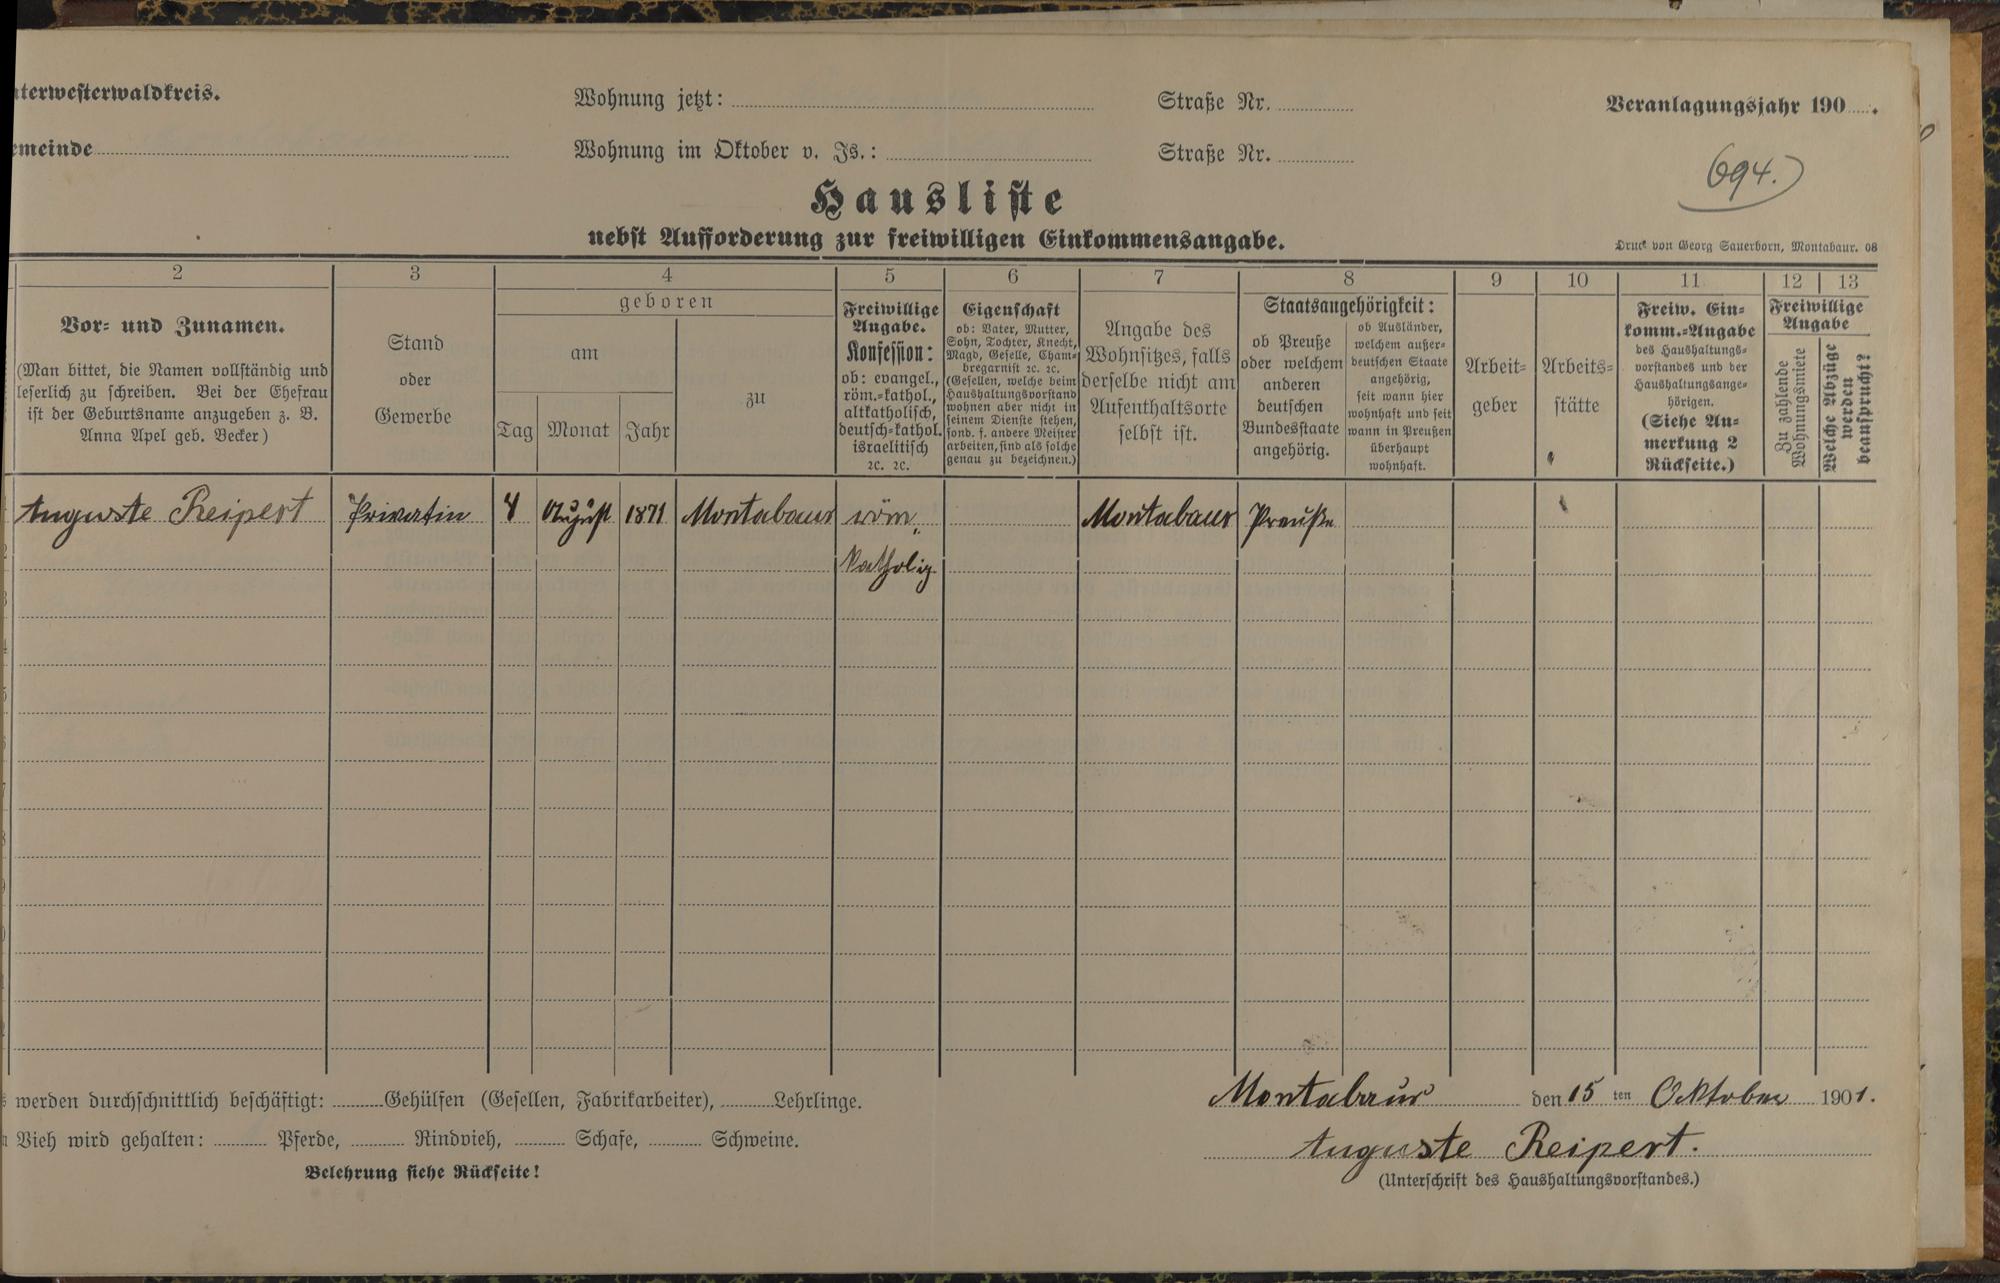 nterwesterwaldkreis.
Wohnung jetzt: Straße Nr.
Veranlagungsjahr 190 .
emeinde
Wohnung im Oktober v. Js.: Straße Nr.
694.
Hausliste
nebst Aufforderung zur freiwilligen Einkommensangabe.
Druck von Georg Sauerborn, Montabaur. 08
2 3 4 5 6 7 8 9 10 11 12 13
Vor- und Zunamen.
(Man bittet, die Namen vollständig und
leserlich zu schreiben. Bei der Ehefrau
ist der Geburtsname anzugeben z. B.
Anna Apel geb. Becker)
Stand
oder
Gewerbe
geboren
am
Tag Monat Jahr
zu
Freiwillige
Angabe.
Konfession:
ob: evangel.,
röm.-kathol.,
altkatholisch,
deutsch-kathol.
israelitisch
ꝛc. ꝛc.
Eigenschaft
ob: Vater, Mutter,
Sohn, Tochter, Knecht,
Magd, Geselle, Cham-
bregarnist ꝛc. ꝛc.
(Gesellen, welche beim
Haushaltungsvorstand
wohnen aber nicht in
seinem Dienste stehen,
sond. f. andere Meister
arbeiten, sind als solche
genau zu bezeichnen.)
Angabe des
Wohnsitzes, falls
derselbe nicht am
Aufenthaltsorte
selbst ist.
Staatsangehörigkeit:
ob Preuße
oder welchem
anderen
deutschen
Bundesstaate
angehörig.
ob Ausländer,
welchem außer-
deutschen Staate
angehörig,
seit wann hier
wohnhaft und seit
wann in Preußen
überhaupt
wohnhaft.
Arbeit-
geber
Arbeits-
stätte
Freiw. Ein-
komm.-Angabe
des Haushaltungs-
vorstandes und der
Haushaltungsange-
hörigen.
(Siehe An-
merkung 2
Rückseite.)
Freiwillige
Angabe
Zu zahlende
Wohnungsmiete
Welche Abzüge
werden
beansprucht?
Auguste Reipert Privatin 4 August 1871 Montabaur röm. Montabaur Preuße
katholig
werden durchschnittlich beschäftigt: Gehülfen (Gesellen, Fabrikarbeiter), Lehrlinge.
Vieh wird gehalten: Pferde, Rindvieh, Schafe, Schweine.
Belehrung siehe Rückseite!
Montabaur den 15 ten Oktober 1901.
Auguste Reipert.
(Unterschrift des Haushaltungsvorstandes.)